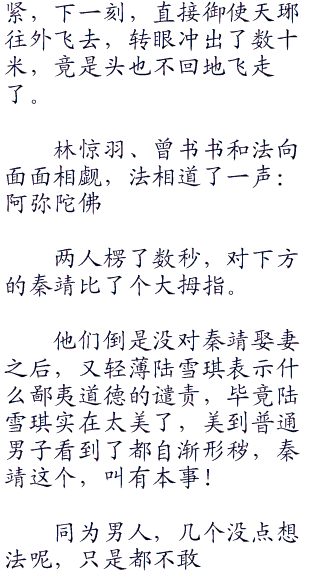 紧，下一刻，直接御使天琊
往外飞去，转眼冲出了数十
米，竟是头也不回地飞走
了。
林惊羽、曾书书和法向
面面相觑，法相道了一声：
阿弥陀佛
两人楞了数秒，对下方
的秦靖比了个大拇指。
他们倒是没对秦靖娶妻
之后，又轻薄陆雪琪表示什
么鄙夷道德的谴责，毕竟陆
雪琪实在太美了，美到普通
男子看到了都自渐形秽，秦
靖这个，叫有本事！
同为男人，几个没点想
法呢，只是都不敢